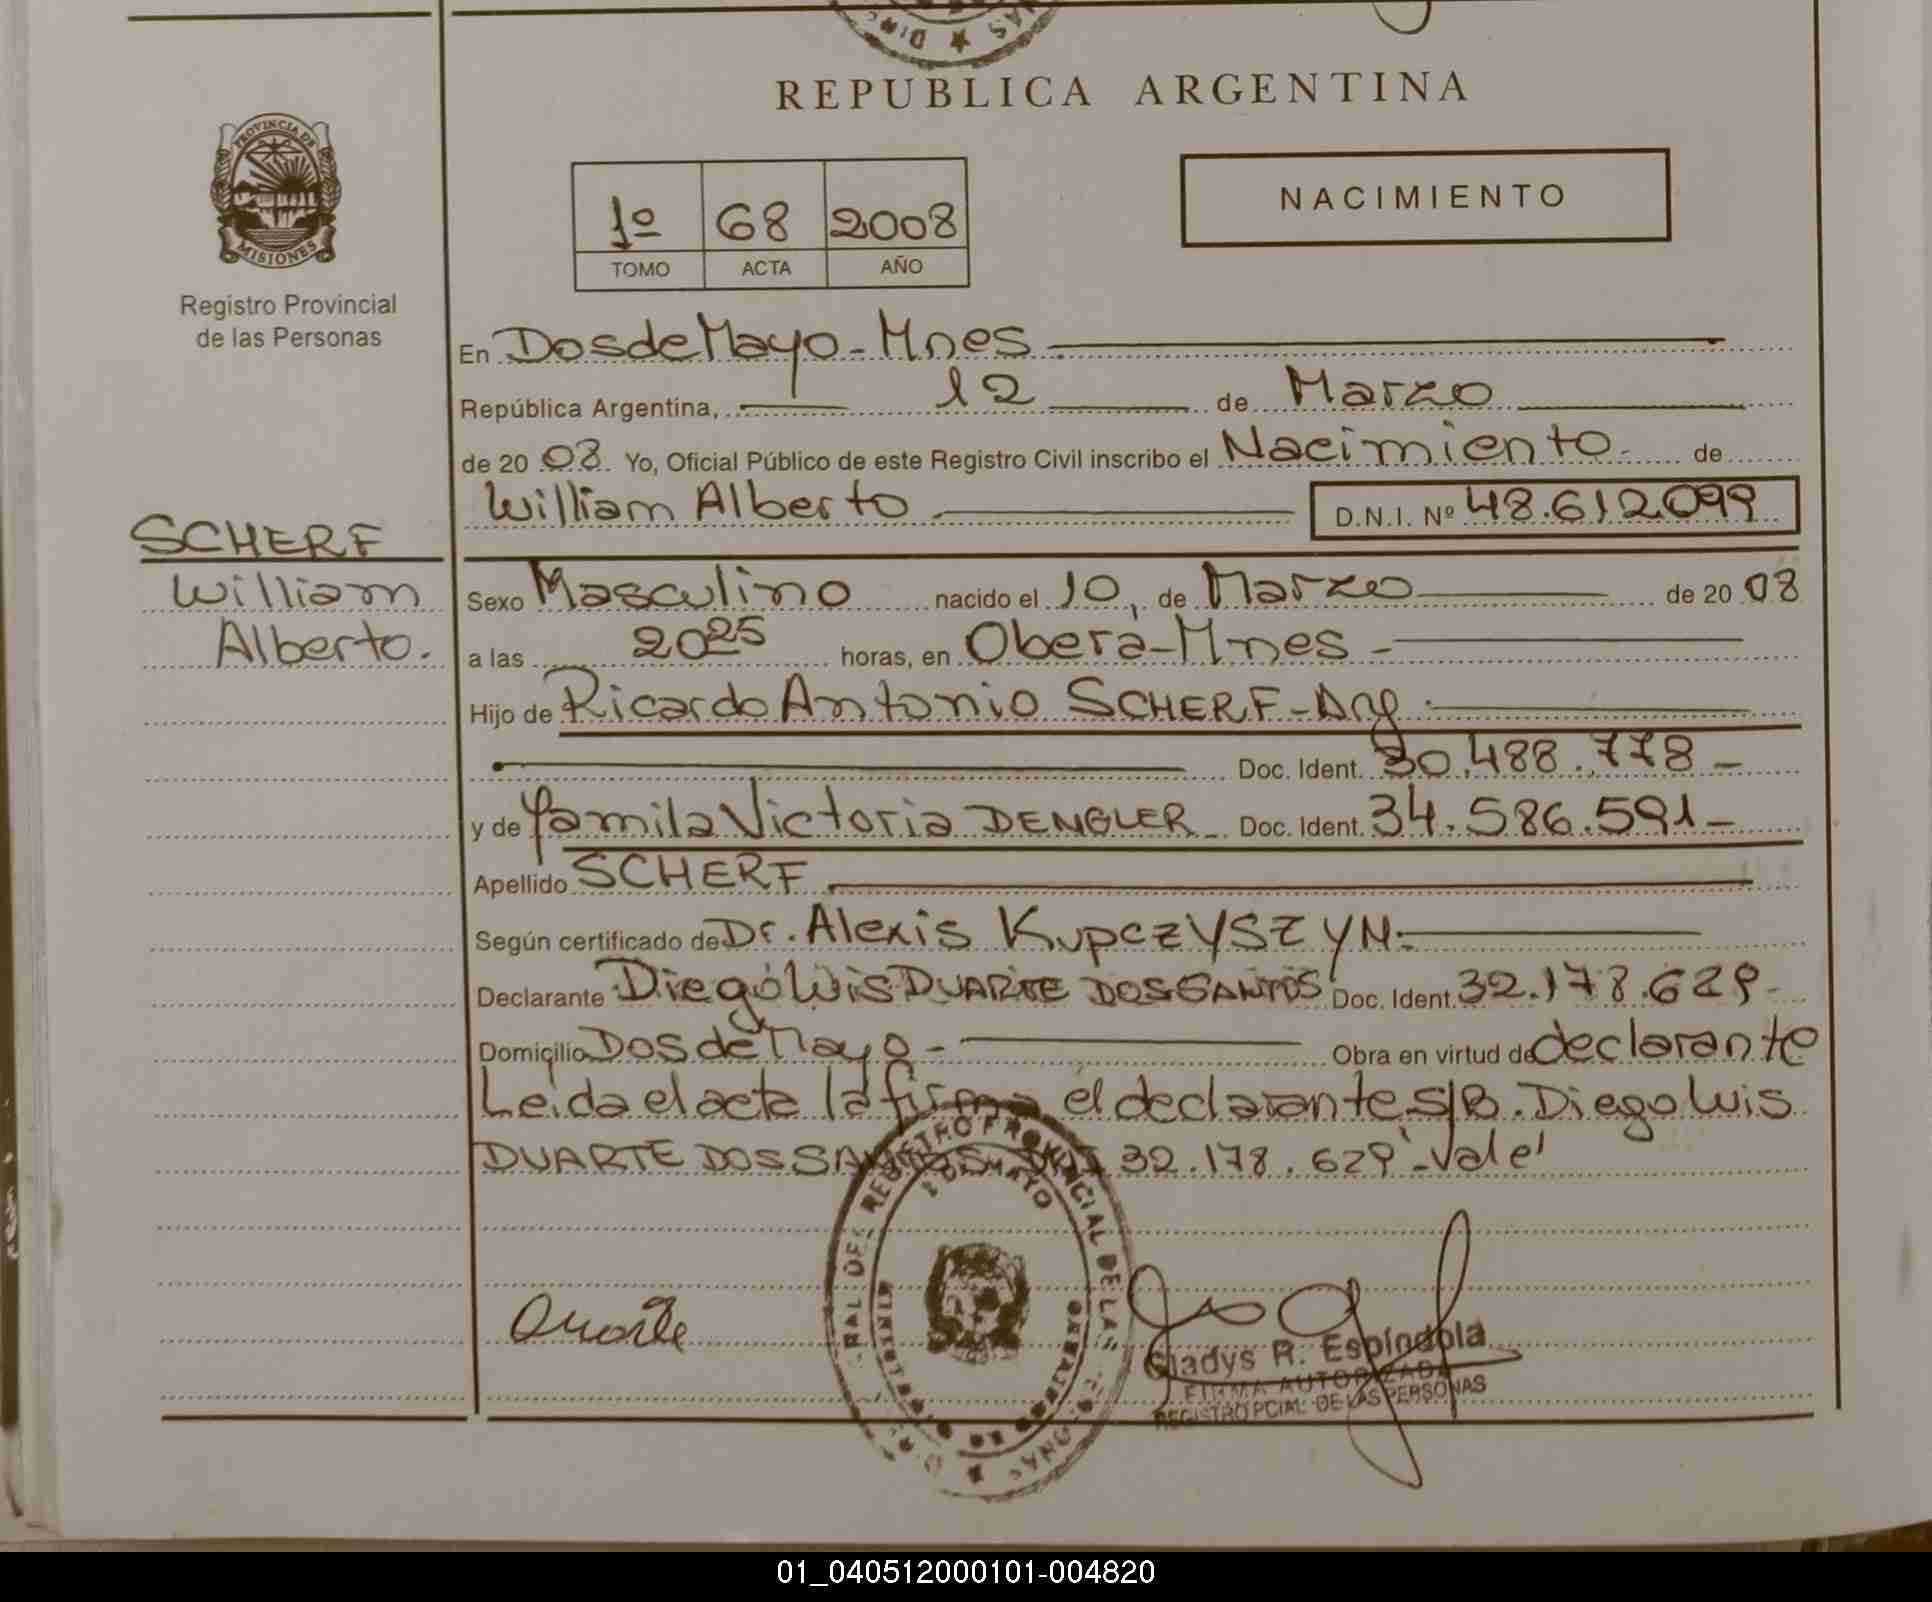 REPUBLICA ARGENTINA
PROVINCIA DE
MISIONES
Registro Provincial
de las Personas
NACIMIENTO
1º 68 2008
TOMO ACTA AÑO
En Dos de Mayo - Mnes
República Argentina, 12 de Marzo
de 20 08. Yo, Oficial Público de este Registro Civil inscribo el Nacimiento - de
William Alberto D.N.I. Nº 48.612099
SCHERF
William
Alberto.
Sexo Masculino nacido el 10, de Marzo de 20 08
a las 2025 horas, en Oberá - Mnes -
Hijo de Ricardo Antonio SCHERF - Arg.
Doc. Ident. 30.488.778 -
y de Yamila Victoria DENGLER - Doc. Ident. 34.586.591 -
Apellido SCHERF
Según certificado de Dr. Alexis KupczYSZYN.-
Declarante Diego Luis DUARTE DOS SANTOS Doc. Ident. 32.178.629 -
Domicilio Dos de Mayo - Obra en virtud de declarante
Leida el acta la firma el declarante S/B. Diego Luis
DUARTE DOS SANTOS 32.178.629 "Vale"
Duarte
Gladys R. Espíndola
FIRMA AUTORIZADA
REGISTRO PCIAL. DE LAS PERSONAS
01_040512000101-004820